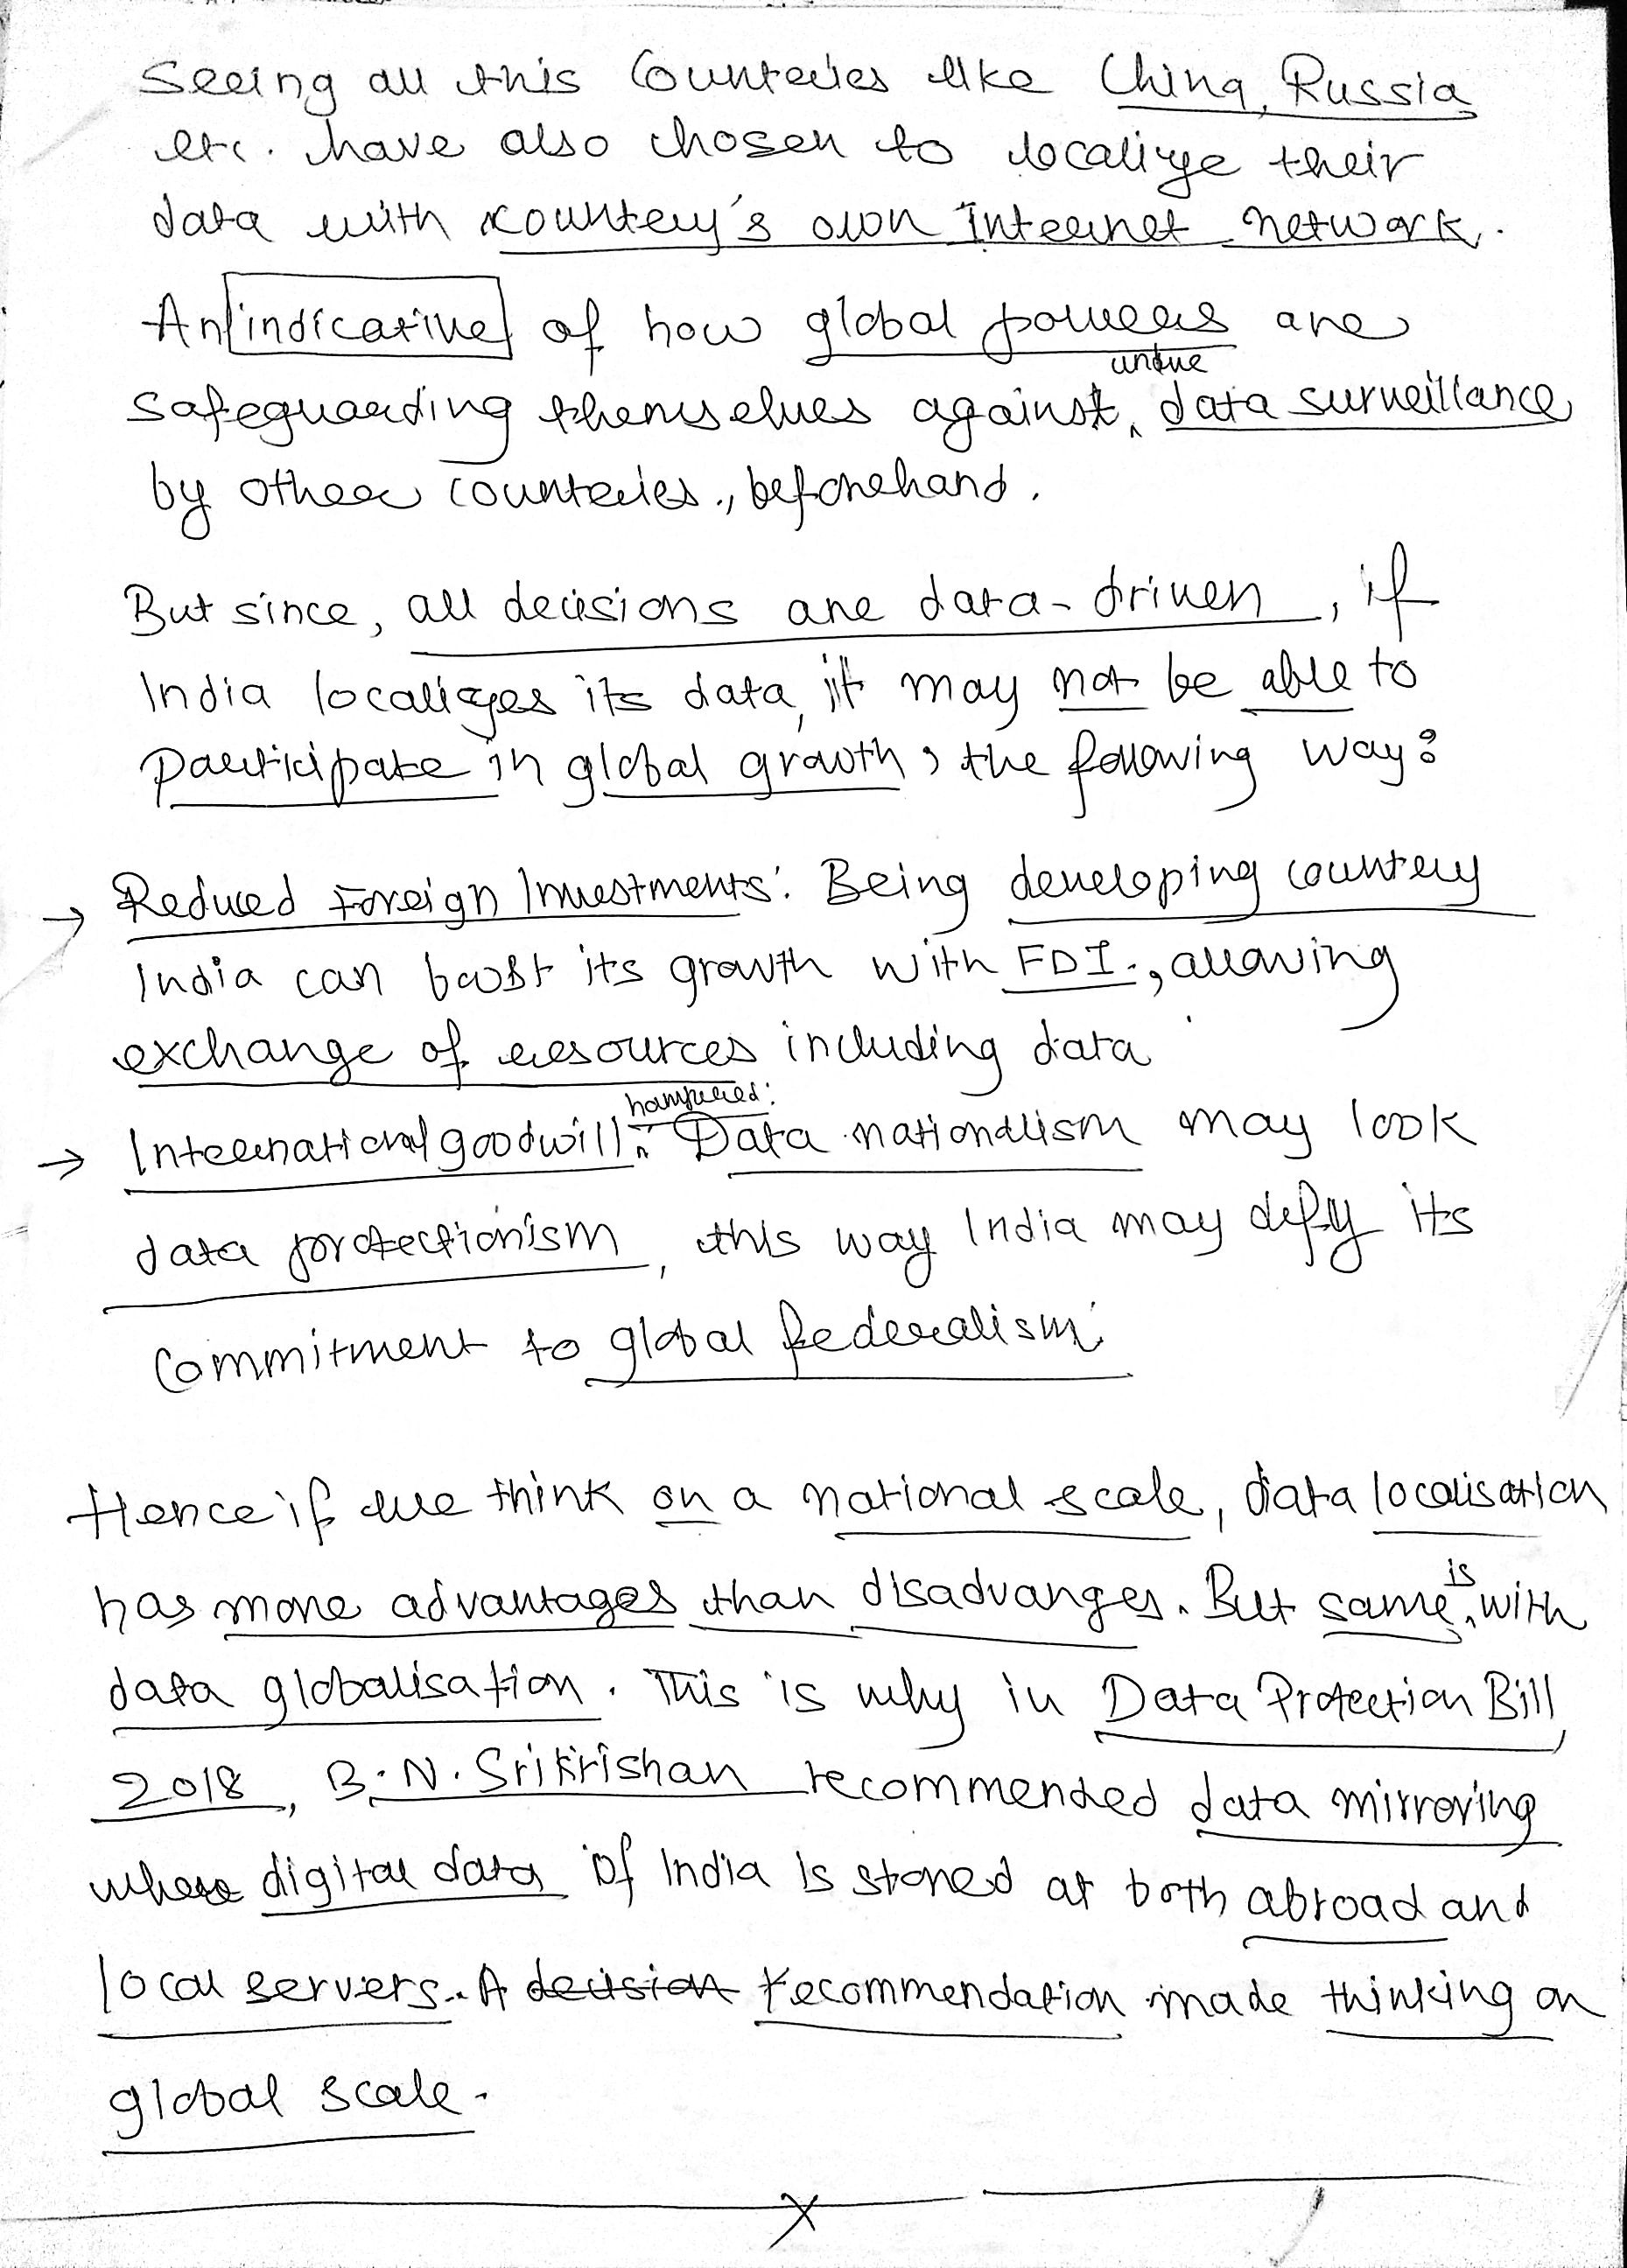 Seeing all this Countries like China, Russia
etc. have also chosen to localize their
data with country's own Internet network.
An indicative of how global powers are
undue
safeguarding themselves against data surveillance
by other countries., beforehand.
But since, all decisions are data-driven, if
India localizes its data, it may not be able to
Participate in global growth, the following way:
→ Reduced Foreign Investments: Being developing country
India can boost its growth with FDI., allowing
exchange of resources including data
hampered:
→ International goodwill Data nationalism may look
data protectionism, this way India may defy its
Commitment to global federalism.
Hence if we think on a national scale, data localisation
has more advantages than disadvanges. But same is with
data globalisation. This is why in Data Protection Bill
2018, B.N. Srikrishan recommended data mirroring
where digital data of India is stored at both abroad and
local servers. A decision recommendation made thinking on
global scale.
X